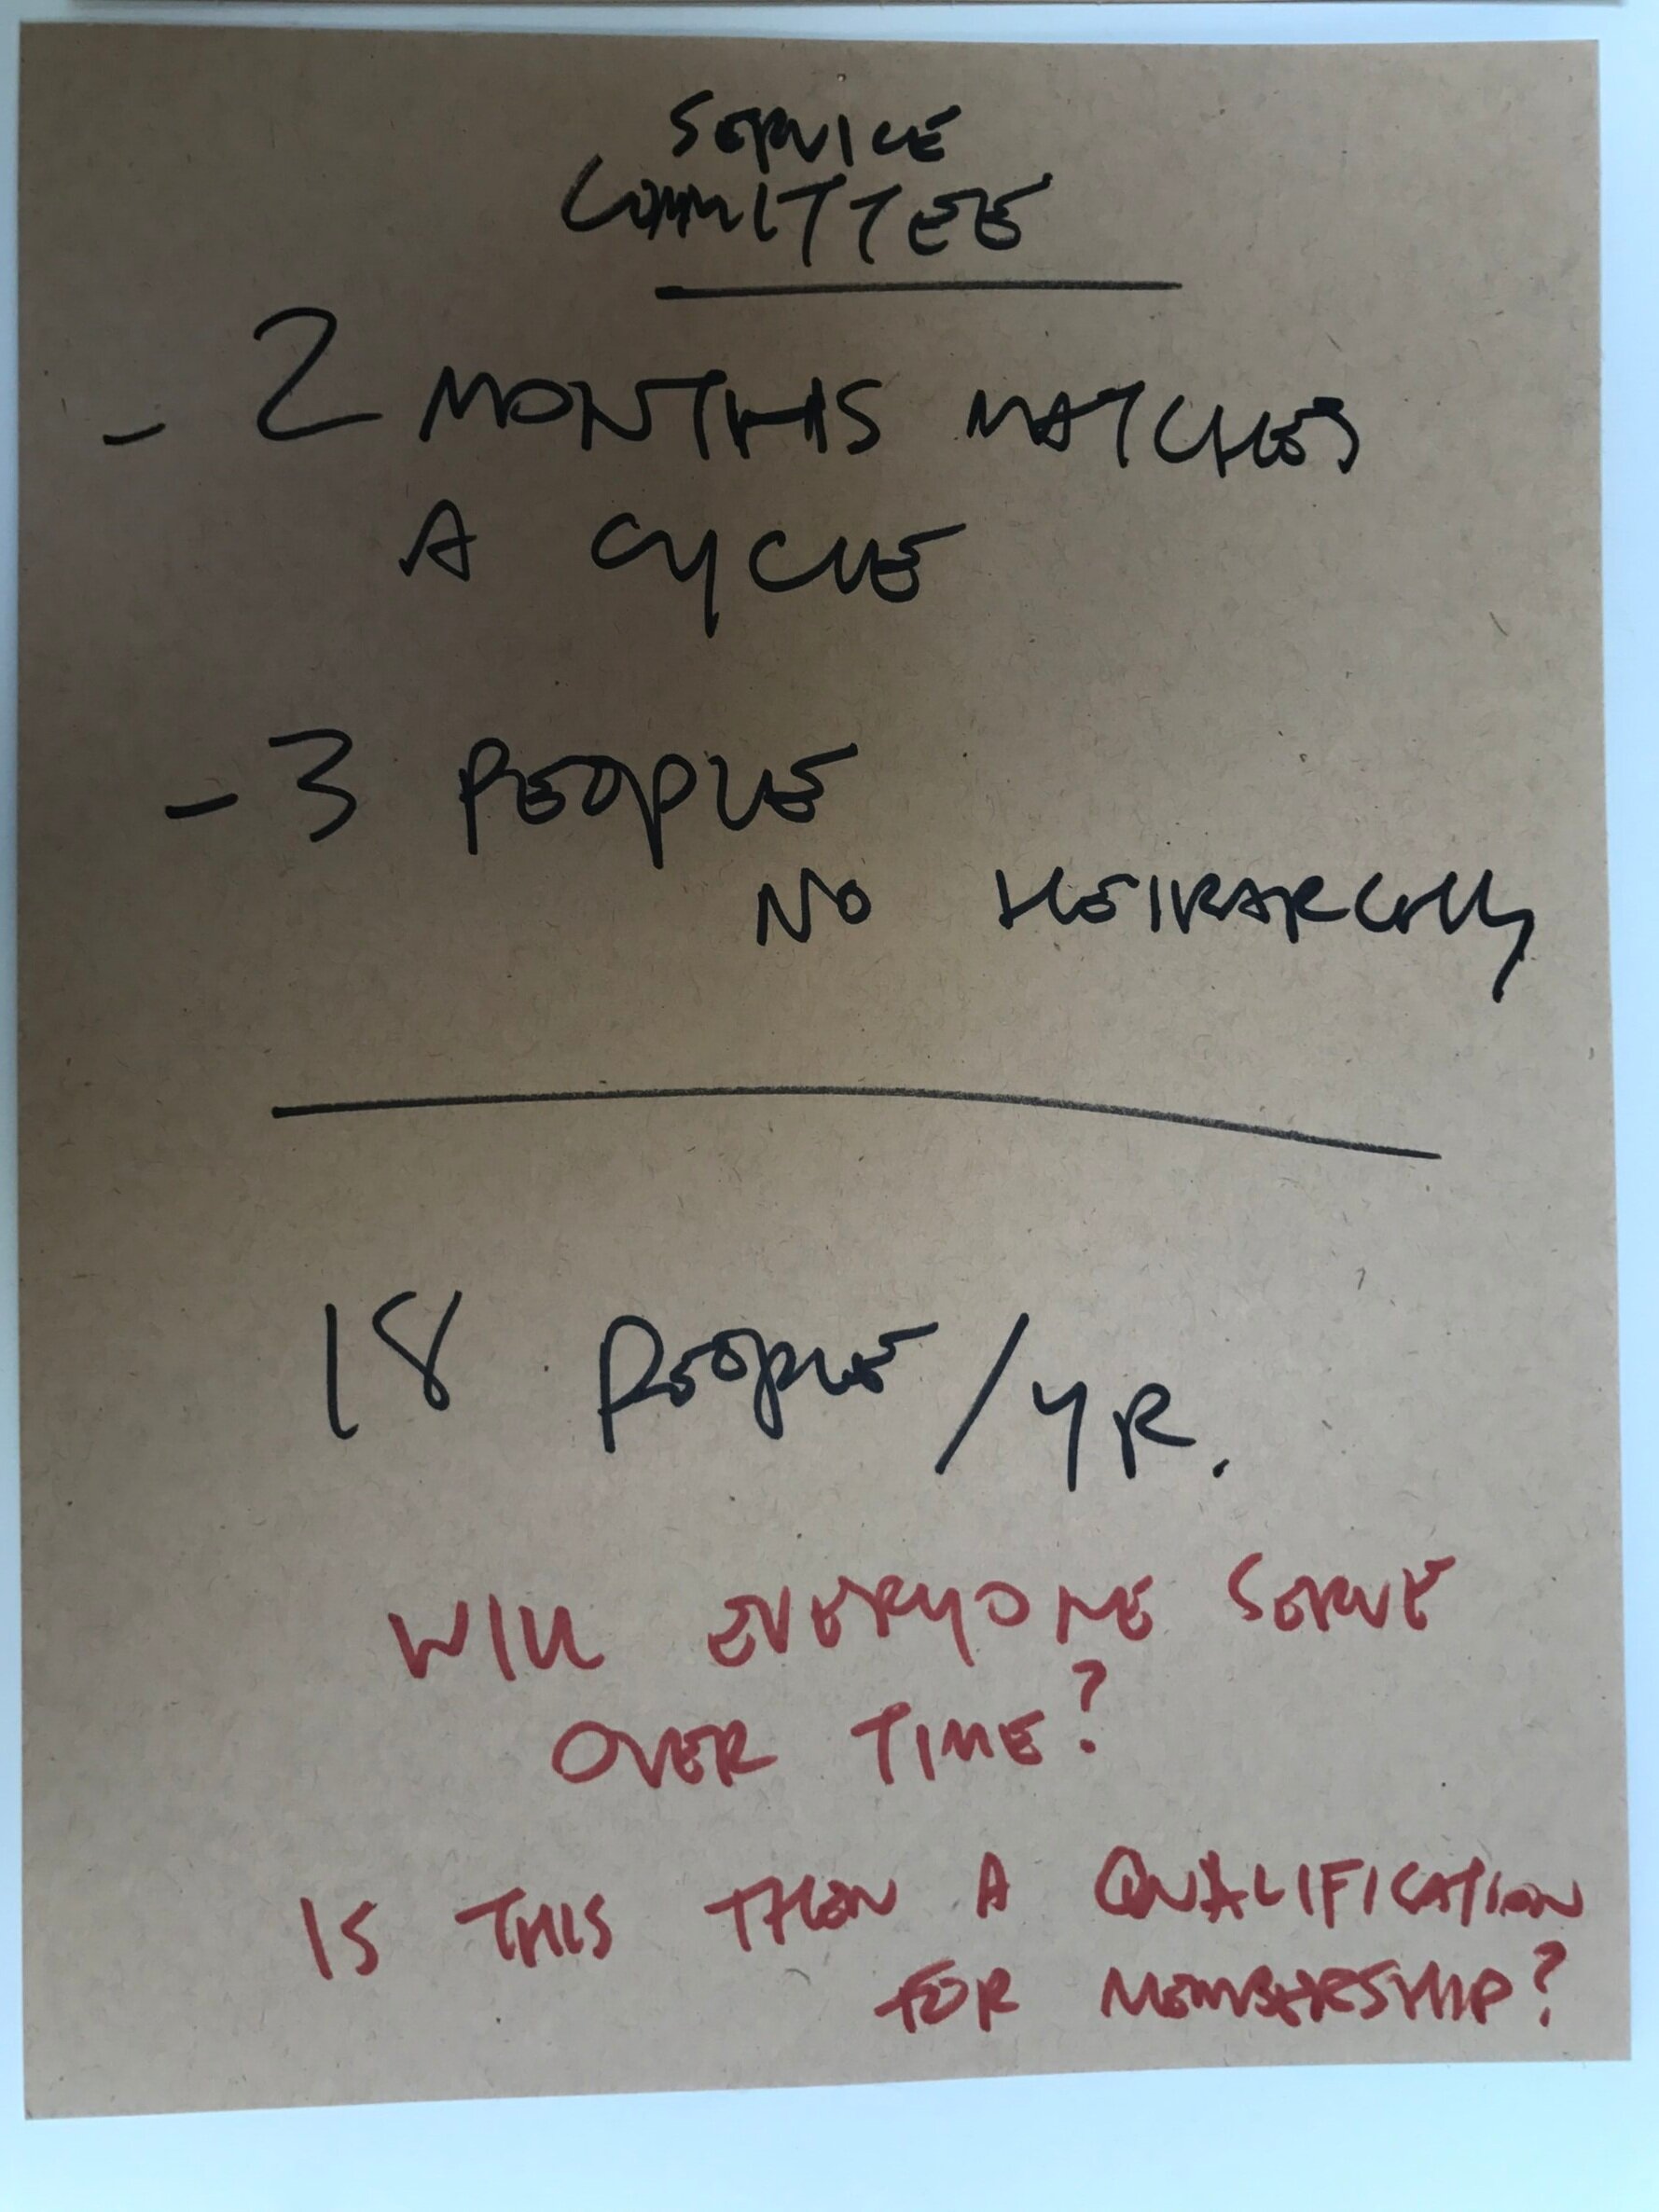 SERVICE
COMMITTEE
- 2 MONTHS MATCHES
A CYCLE
- 3 PEOPLE
NO HEIRARCHY
18 PEOPLE/YR.
WILL EVERYONE SERVE
OVER TIME?
IS THIS THEN A QUALIFICATION
FOR MEMBERSHIP?